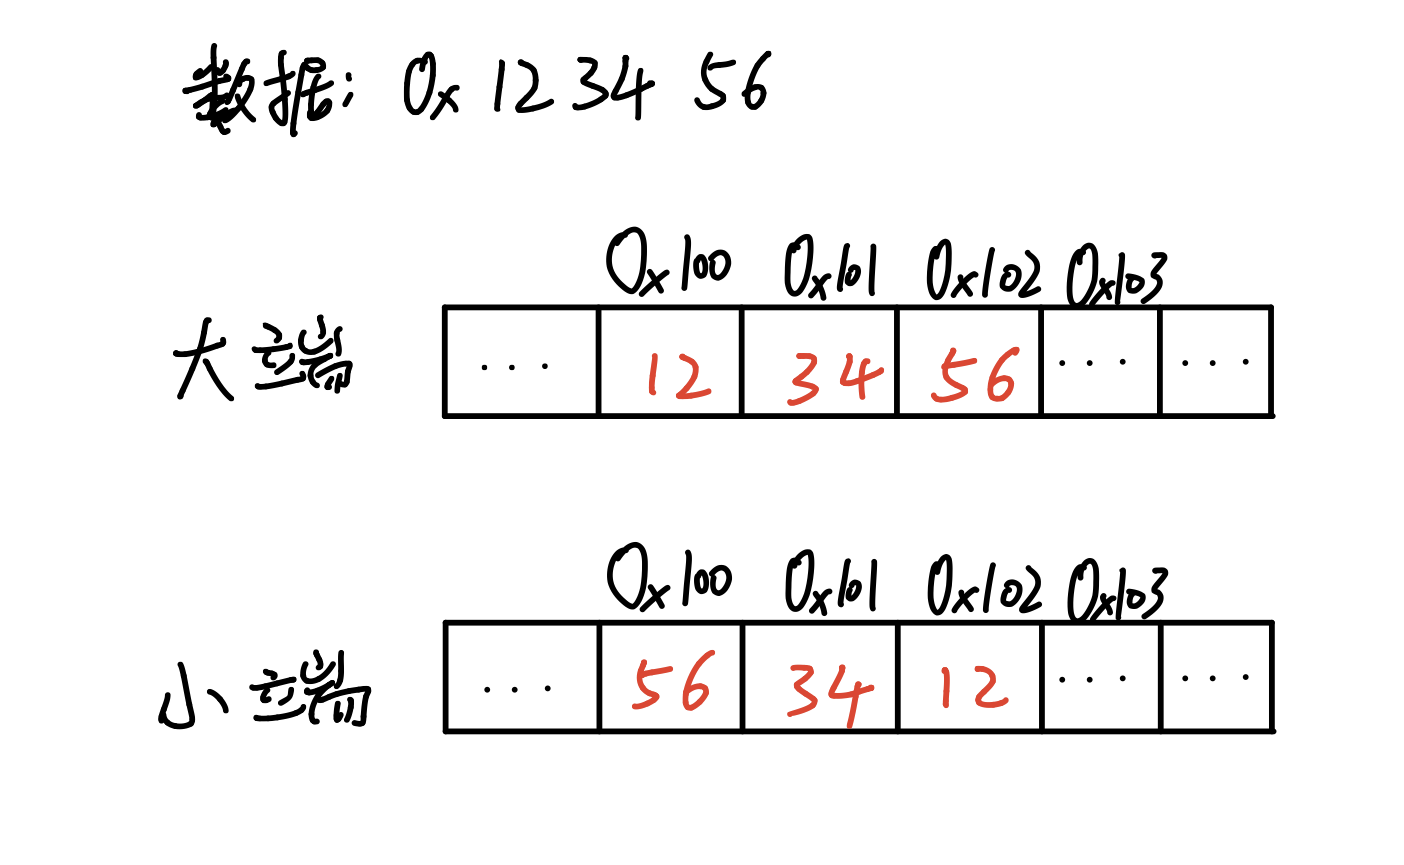 数据: 0x 12 34 56
0x100 0x101 0x102 0x103
大端 ... 12 34 56 ... ...
0x100 0x101 0x102 0x103
小端 ... 56 34 12 ... ...